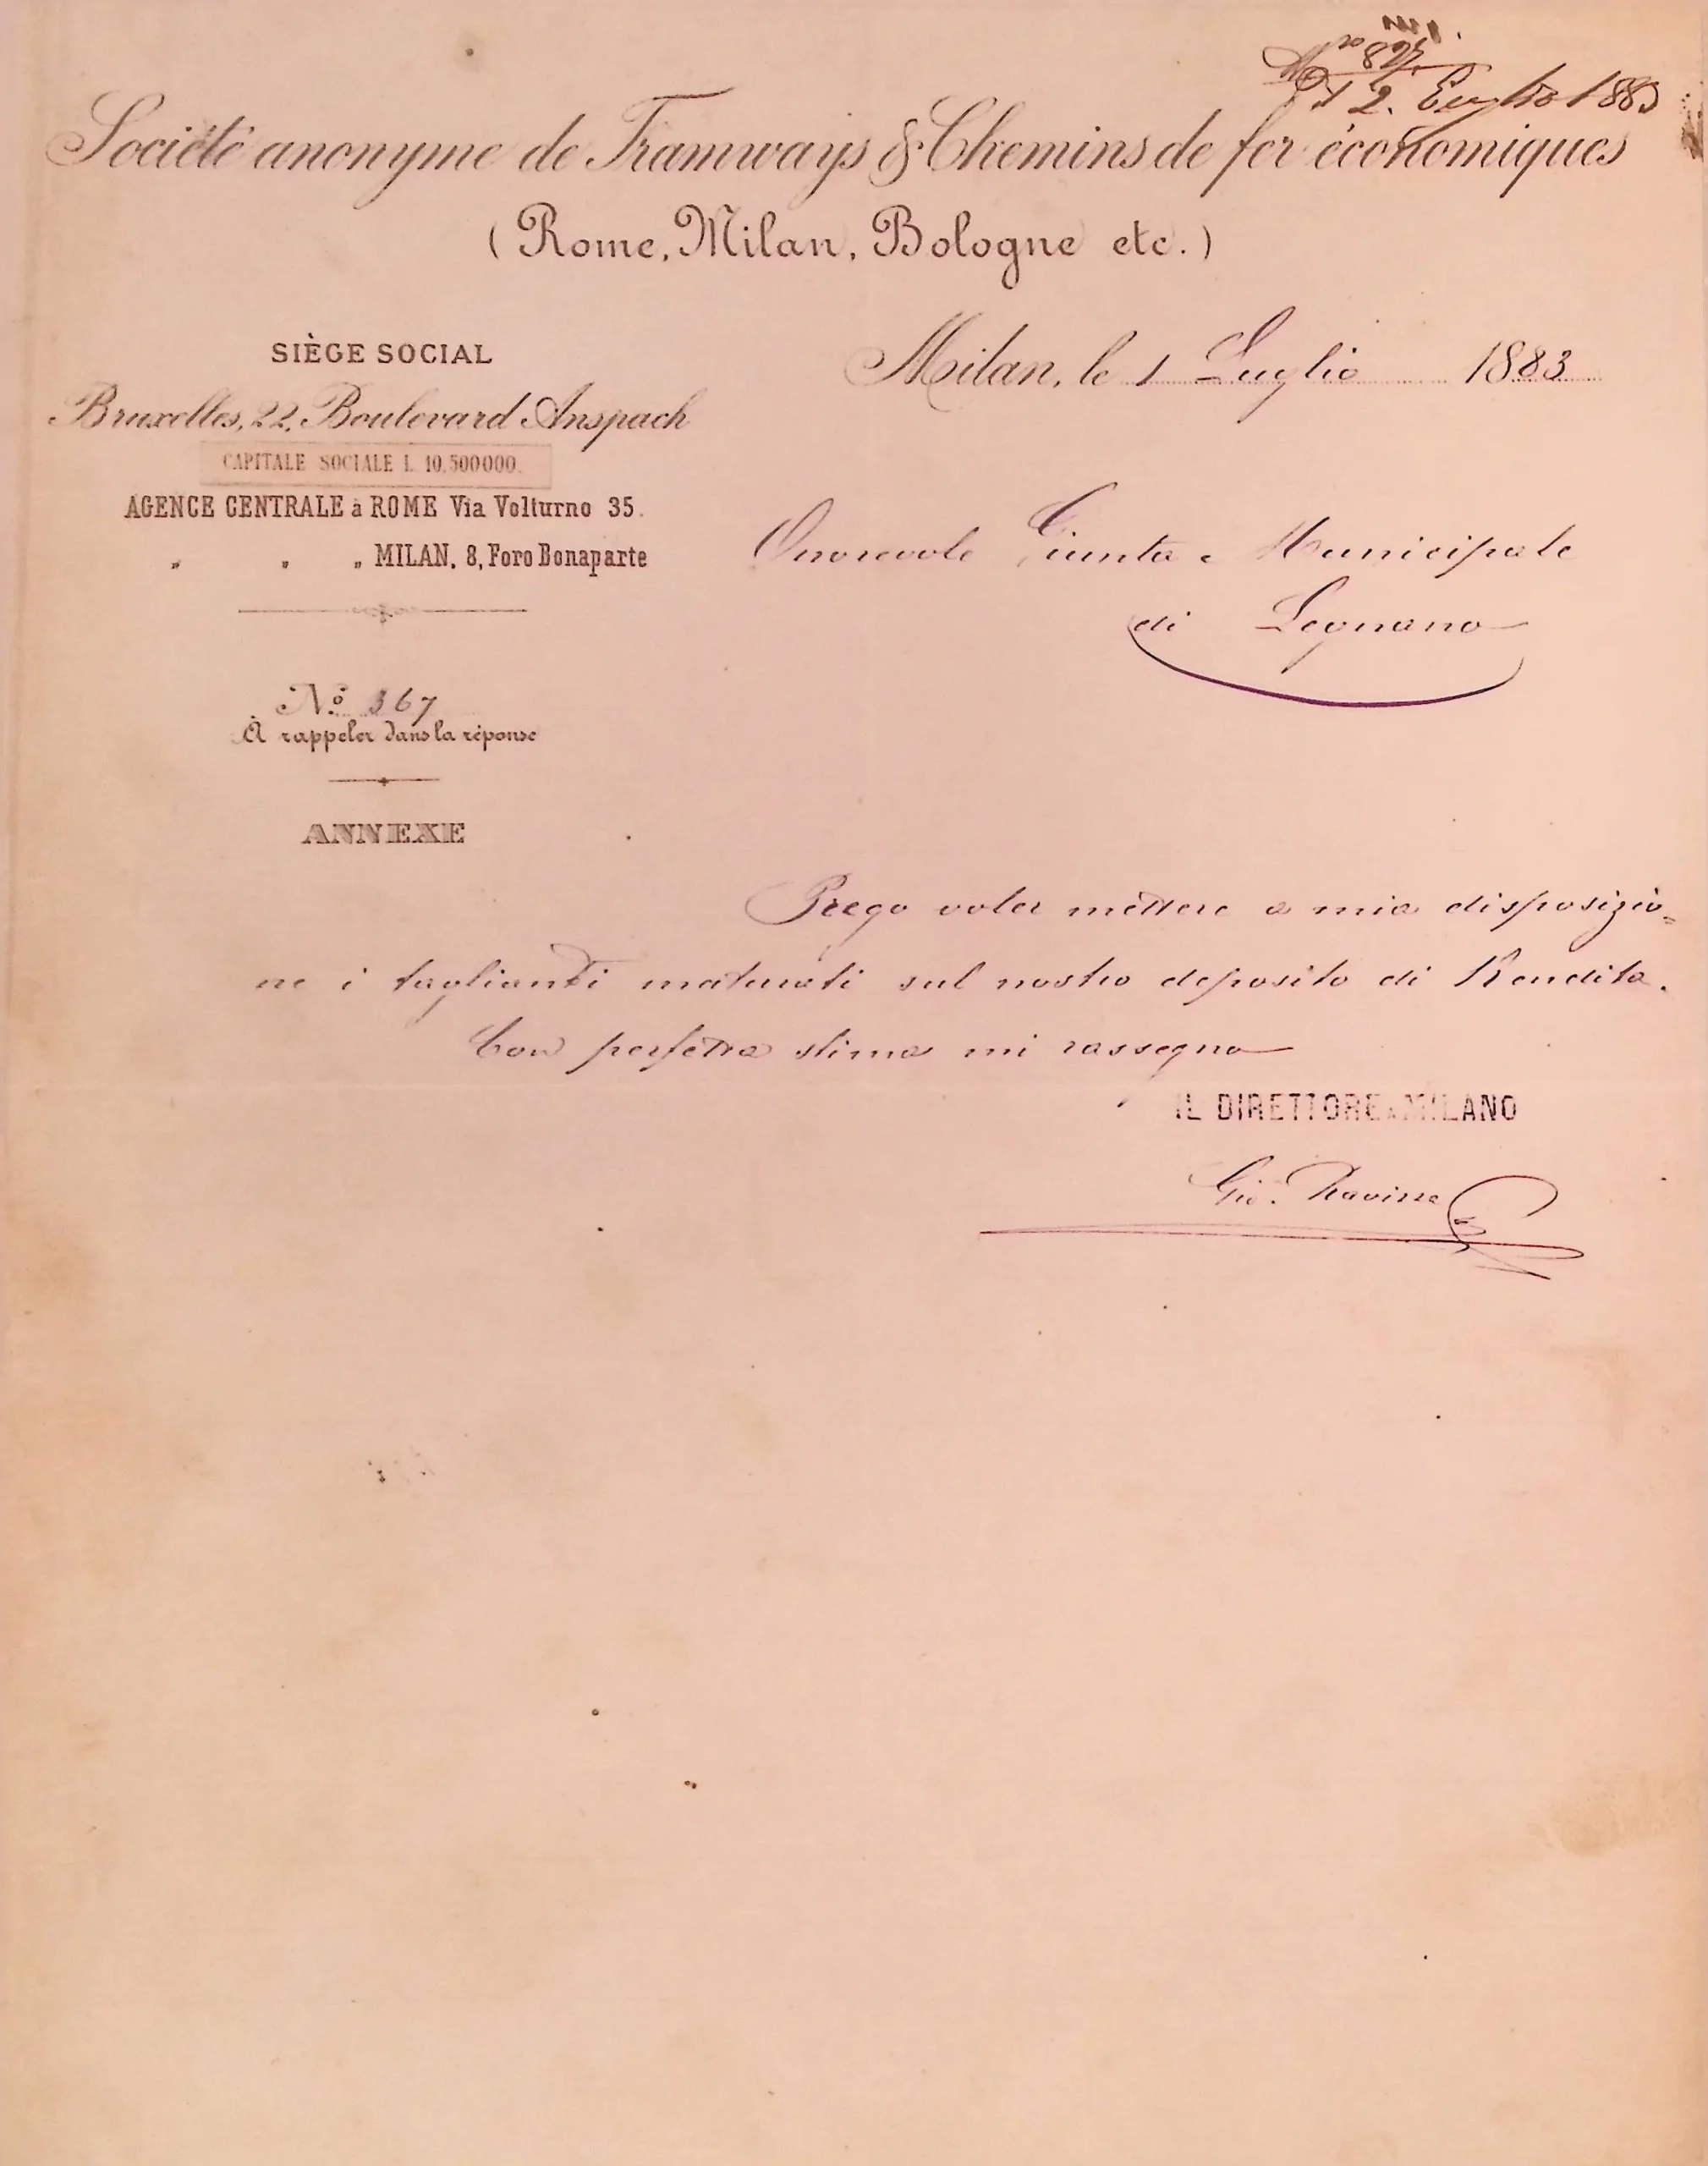 2. Luglio 1883
Société anonyme de Tramways & Chemins de fer économiques
(Rome, Milan, Bologne etc.)
SIÈGE SOCIAL
Bruxelles, 22, Boulevard Anspach
CAPITALE SOCIALE L. 10.500000.
AGENCE CENTRALE à ROME Via Volturno 35.
" " " MILAN, 8, Foro Bonaparte
No. 367
À rappeler dans la réponse
ANNEXE
Milan, le 1 Luglio 1883
Onorevole Giunta Municipale
di Legnano
Prego voler mettere a mia disposizio=
ne i taglianti maturati sul nostro deposito di Rendita.
Con perfetta stima mi rassegno
IL DIRETTORE A MILANO
Gio.